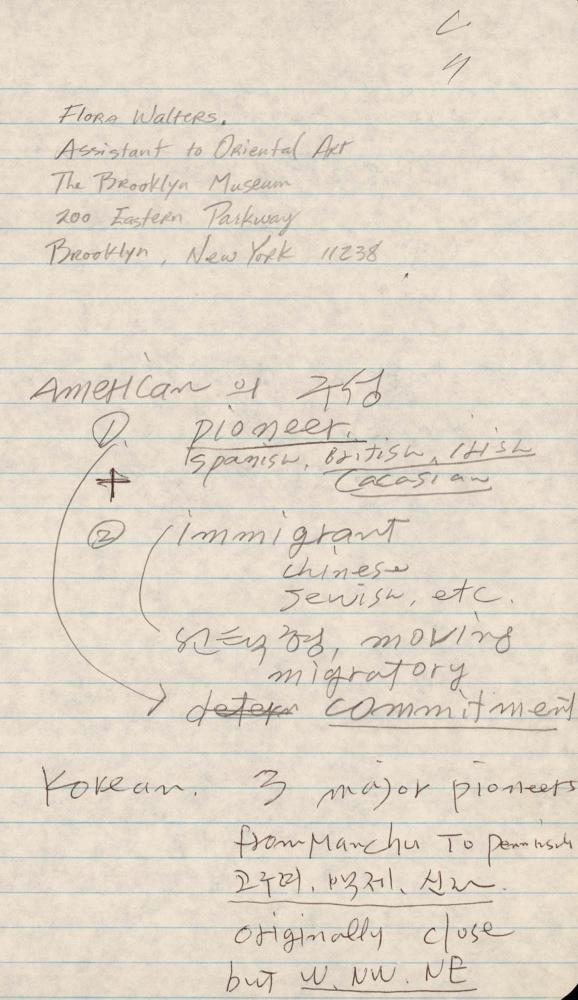 Flora Walters.
Assistant to Oriental Art
The Brooklyn Museum
200 Eastern Parkway
Brooklyn, New York 11238
American 의 구성
①. pioneer.
Spanish, British, Irish
Cacasian
+
② immigrant
Chinese
Jewish, etc.
moving
migratory
commitment
Korean. 3 major pioneers
from Manchu To Penninsula
고구려, 백제, 신라.
originally close
but W. NW. NE